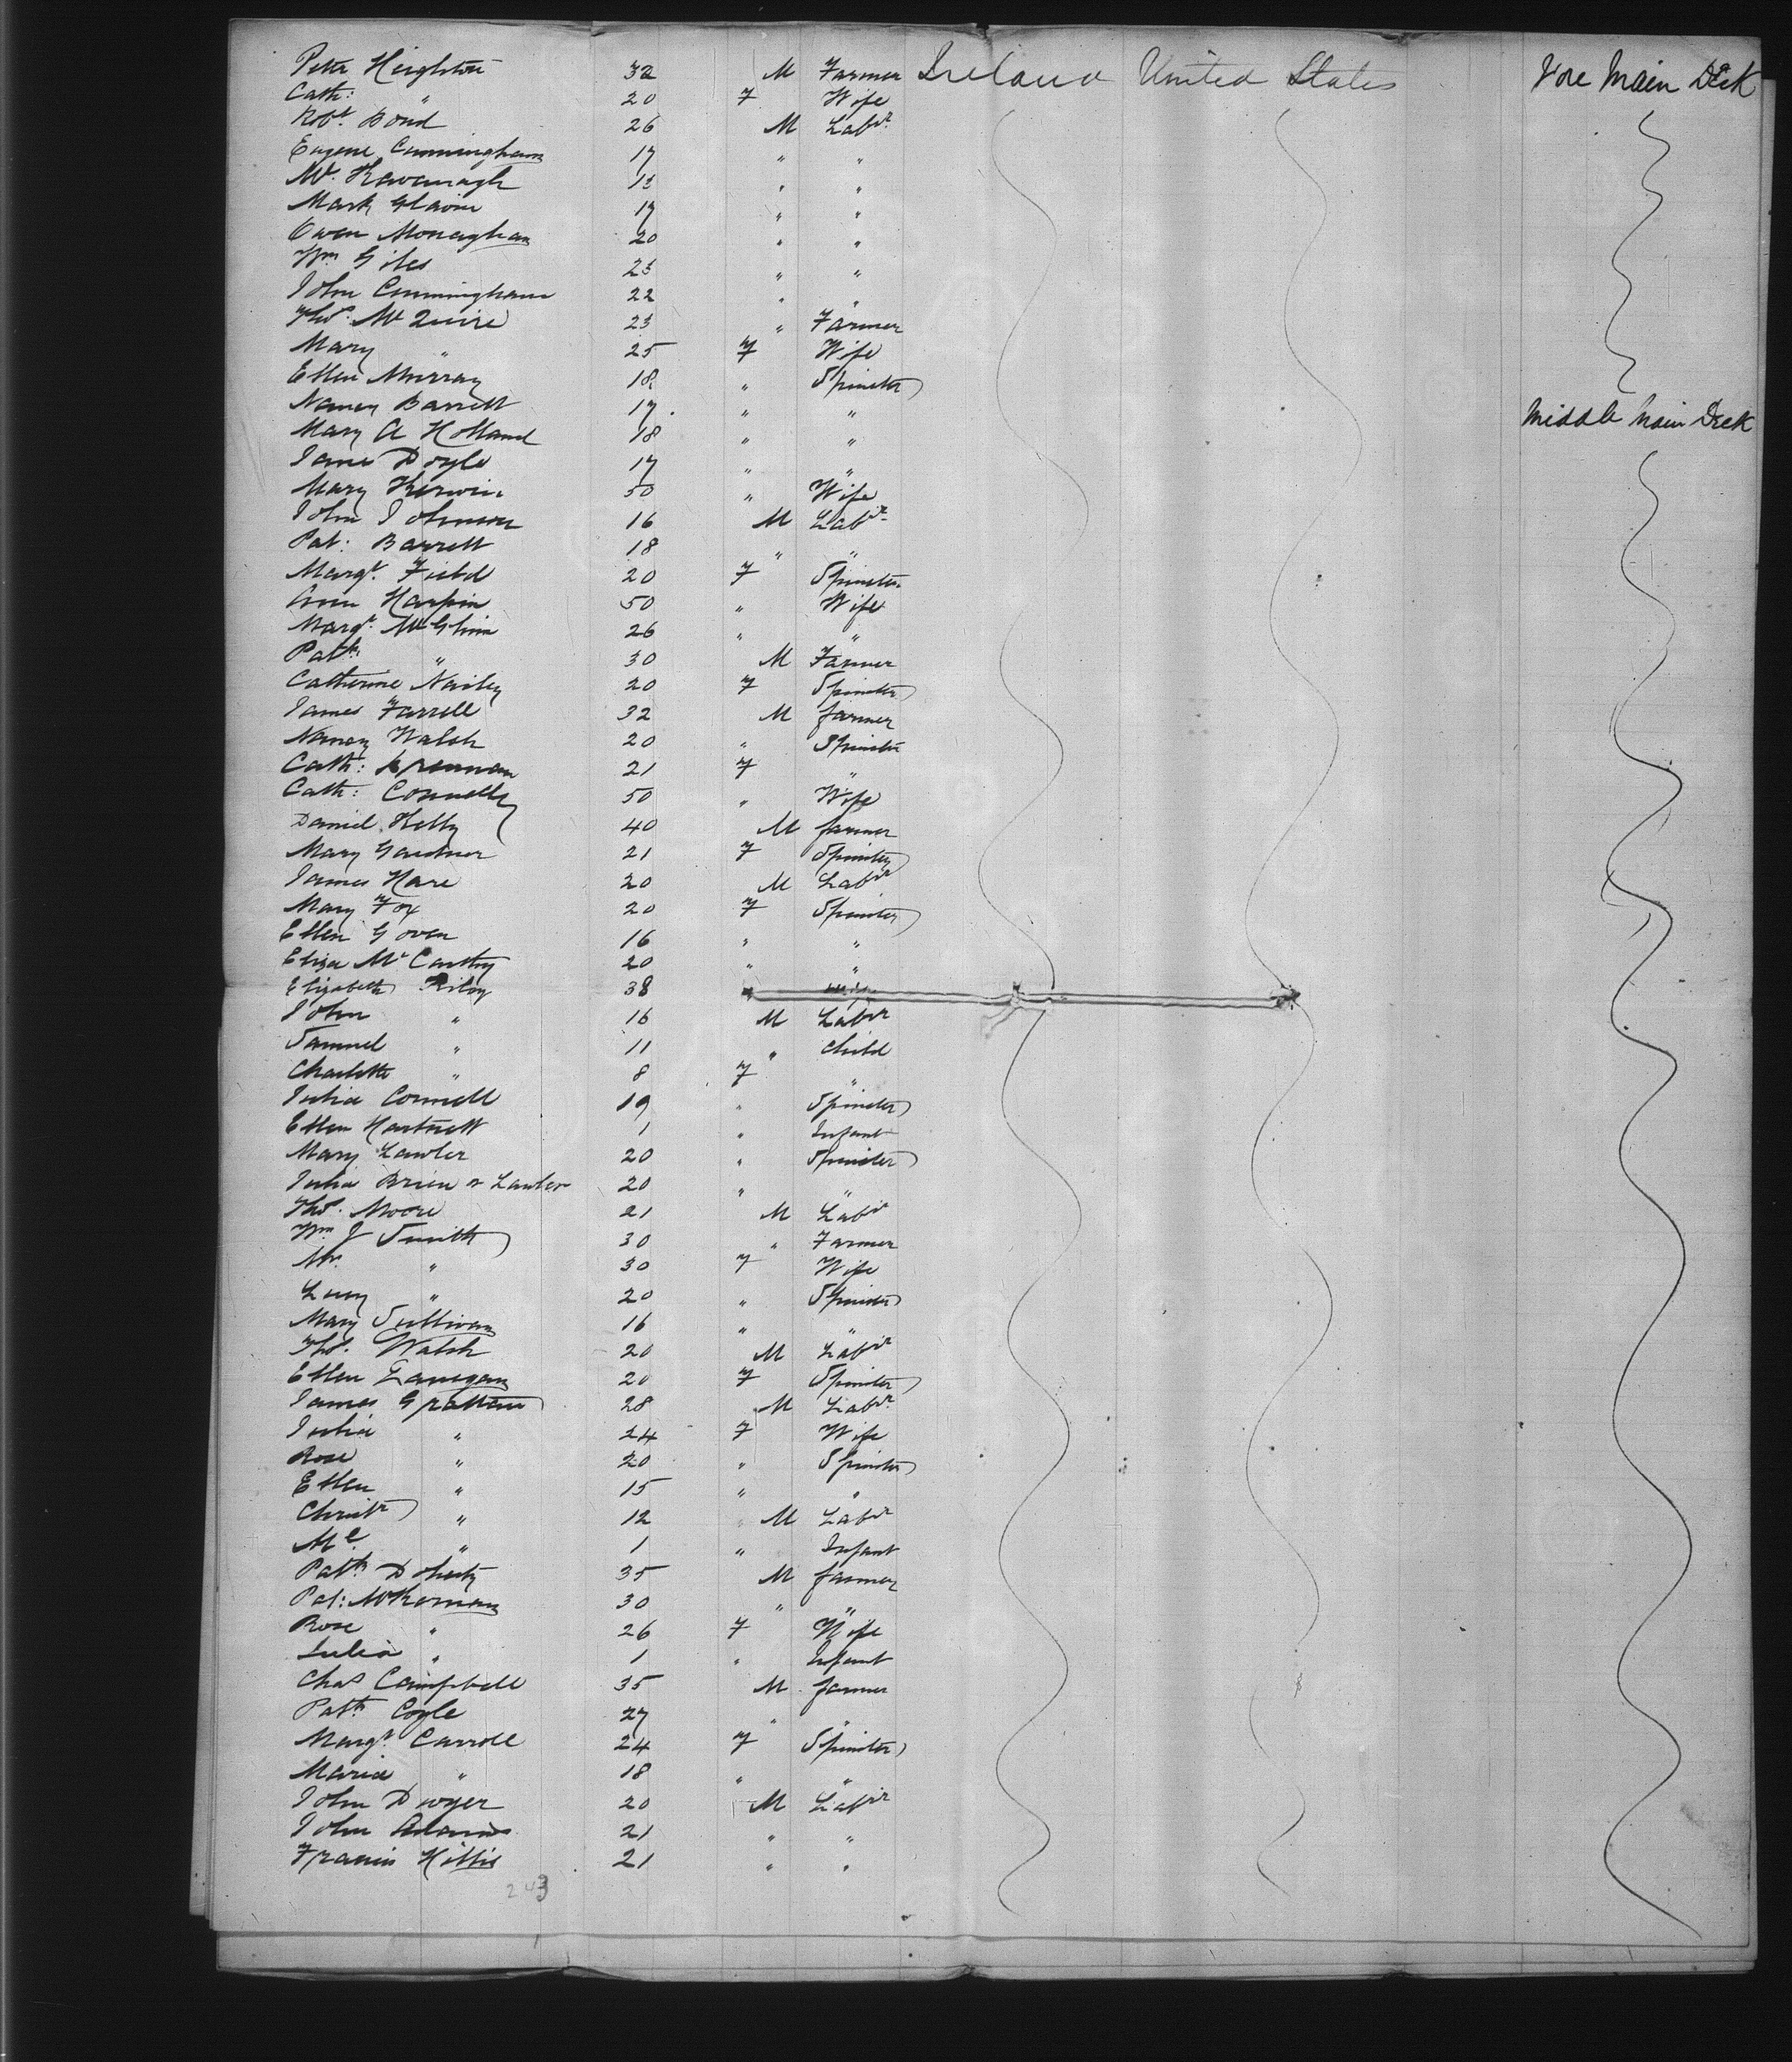 Peter Heighton 32 M Farmer Ireland United States Fore Main Deck
Cath: " 20 F Wife
Robt. Bond 26 M Labr.
Eugene Cunningham 17 " "
Mc. Kavanagh 13 " "
Mark 17 " "
Owen Monaghan 20 " "
Wm Giles 23 " "
John Cunningham 22 " "
Thos. McQuire 23 " Farmer
Mary " 25 F Wife
Ellen Murray 18 " Spinster
Nancy Barrett 17 " " Middle Main Deck
Mary A Holland 18 " "
Jane Doyle 17 " "
Mary Kerwin 50 " Wife
John Johnson 16 M Labr.
Pat: Barrett 18 " "
Margt. Field 20 F Spinster
Ann Harpin 50 " Wife
Margt. McGlinn 26 " "
Patk. " 30 M Farmer
Catherine Nailey 20 F Spinster
James Farrell 32 M farmer
Nancy Walsh 20 " Spinster
Cath: Brennan 21 F "
Cath: Connelly 50 " Wife
Daniel Kelly 40 M farmer
Mary Gardner 21 F Spinster
James Hare 20 M Labr
Mary Fox 20 F Spinster
Ellen Goven 16 " "
Eliza McCarthy 20 " "
Elizabeth Riley 38 " Wife
John " 16 M Labr
Samuel " 11 " Child
Charlotte " 8 F "
Julia Connell 19 " Spinster
Ellen Hartnett 1 " Infant
Mary Lawler 20 " Spinster
Julia Brien or Lawler 20 " "
Thos. Moore 21 M Labr
Wm J Smith 30 " Farmer
Mrs " 30 F Wife
Lucy " 20 " Spinster
Mary Sullivan 16 " "
Thos. Walsh 20 M Labr
Ellen Lanegan 20 F Spinster
James Grattan 28 M Labr.
Julia " 24 F Wife
Rose " 20 " Spinster
Ellen " 15 " "
Christr " 12 " M Labr
Ml. " 1 " Infant
Patk Doherty 35 M farmer
Pat: McKernan 30 " "
Rose " 26 F Wife
Julia " 1 " Infant
Chas Campbell 35 M farmer
Patk. Coyle 27 " "
Margt. Carroll 24 F Spinster
Maria " 18 " "
John Dwyer 20 M Labr
John Adams 21 " "
Francis Hillis 21 " "
243